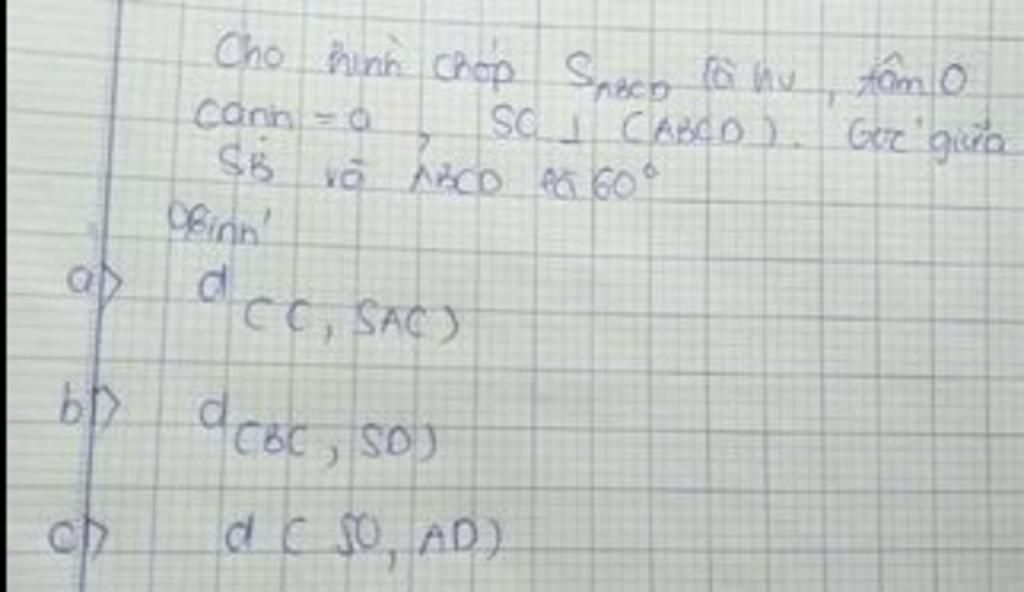 Cho hình chóp SABCD là hv, tâm O
cạnh = a, SC ⊥ (ABCD). Góc giữa
SB và ABCD là 60°
Tính
a) d(C, SAC)
b) d(BC, SD)
c) d(SO, AD)